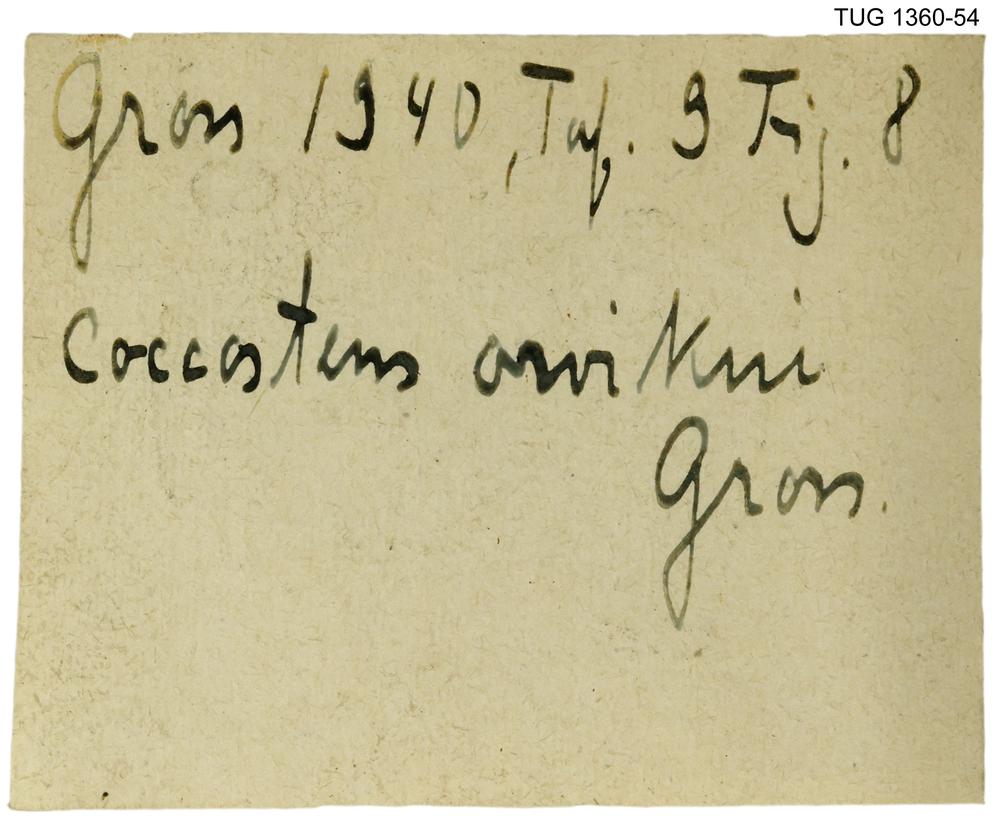 TUG 1360-54
Gross 1940, Taf. 9 Fig. 8
Coccosteus orvikui
Gross.